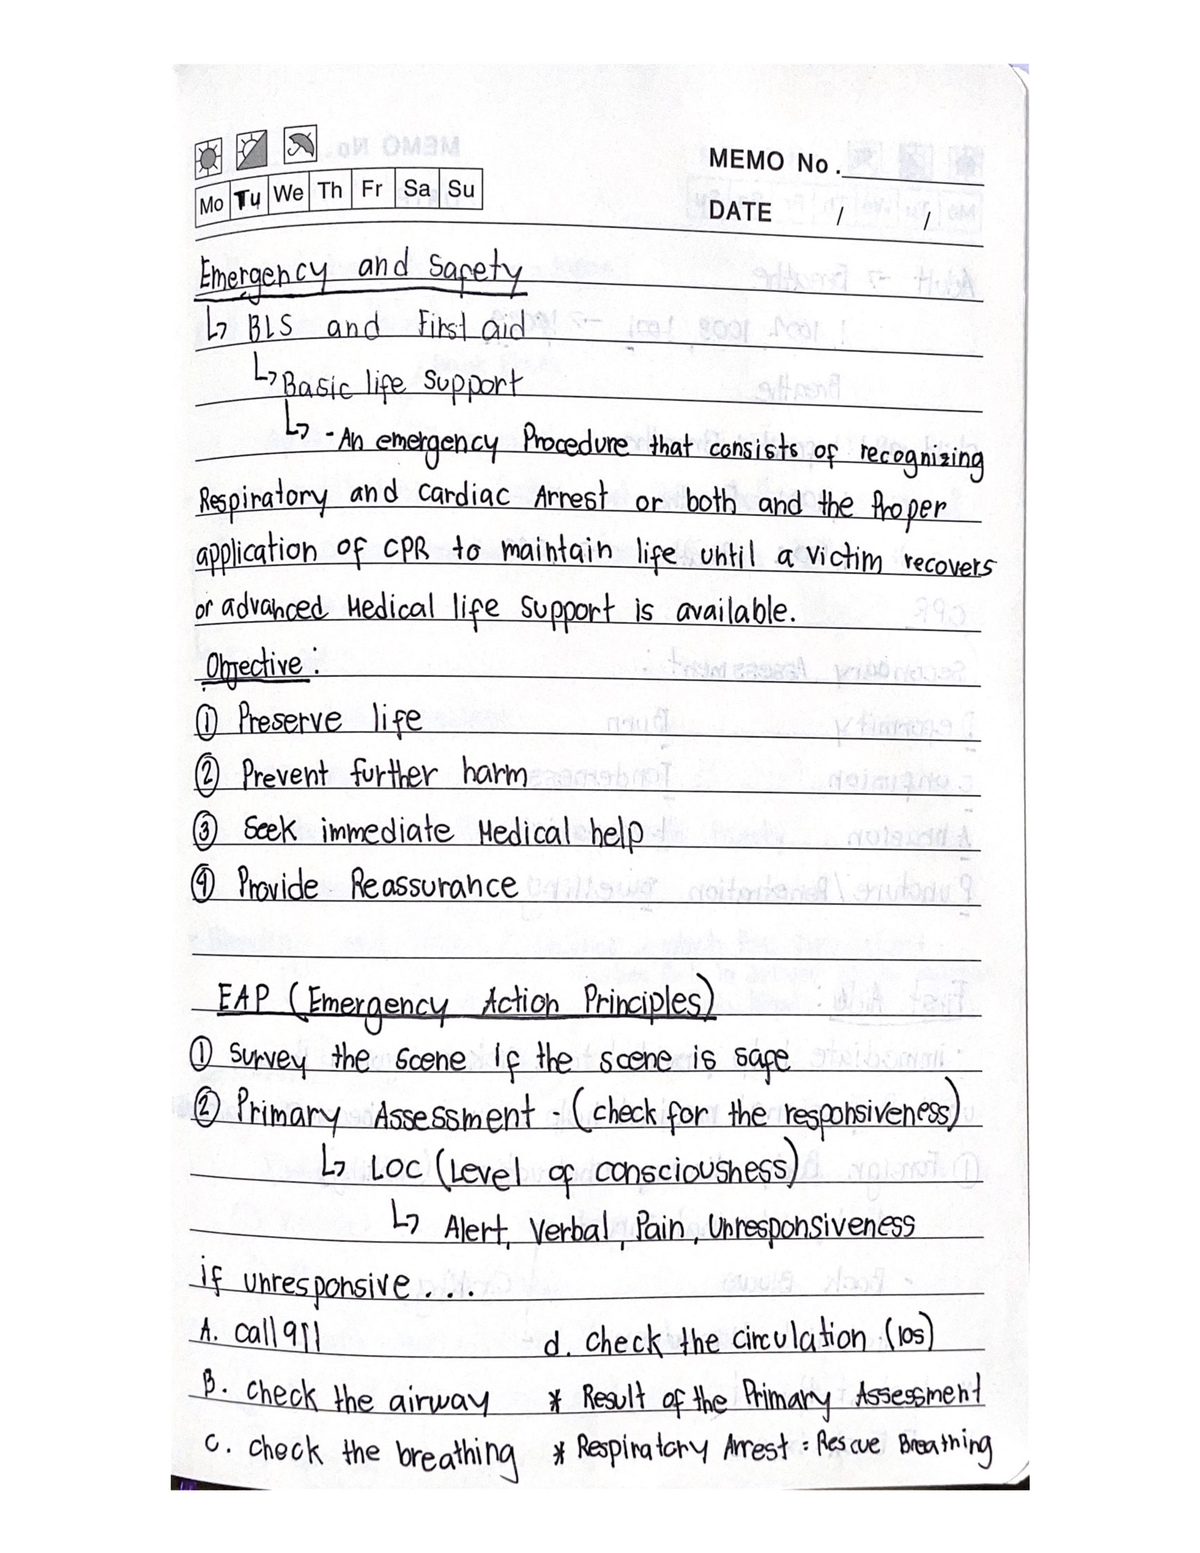 MEMO No.
Mo Tu We Th Fr Sa Su
DATE / /
Emergency and Safety
↳ BLS and First aid
↳ Basic life support
↳ - An emergency Procedure that consists of recognizing
Respiratory and cardiac Arrest or both and the Proper
application of CPR to maintain life until a victim recovers
or advanced Medical life support is available.
Objective :
① Preserve life
② Prevent further harm
③ Seek immediate Medical help
④ Provide Reassurance
EAP (Emergency Action Principles)
① Survey the scene if the scene is safe
② Primary Assessment - (check for the responsiveness)
↳ LOC (Level of consciousness)
↳ Alert, Verbal, Pain, Unresponsiveness
if unresponsive...
A. call 911 d. check the circulation (10s)
B. check the airway * Result of the Primary Assessment
C. check the breathing * Respiratory Arrest : Rescue Breathing